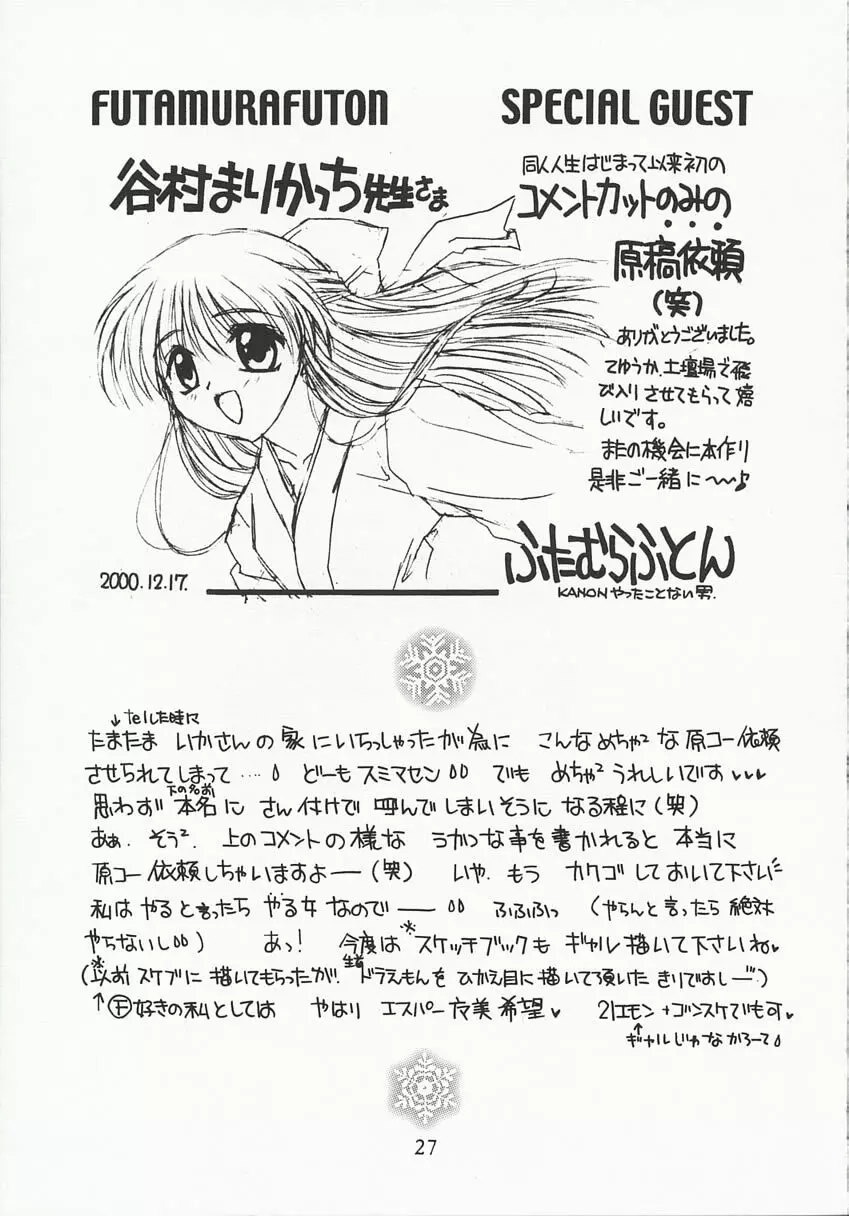 FUTAMURAFUTON
SPECIAL GUEST
谷村まりかっち先生さま
同人人生はじまって以来初の
コメントカットのみの
原稿依頼
(笑)
ありがとうございました。
てゆうか、土壇場で飛
び入りさせてもらって嬉
しいです。
またの機会に本作り
是非ご一緒に〜〜♪
ふたむらふとん
KANONやったことない男.
2000.12.17.
↓telした時に
たまたま いかさんの家にいらっしゃったが為に こんなめちゃ²な原コー依頼
させられてしまって…. どーもスミマセン でも めちゃ²うれしいです♥♥♥
下の名前
思わず本名に さん付けで 呼んでしまいそうに なる程に(笑)
あぁ. そう². 上のコメントの様な うかつな事を書かれると 本当に
原コー依頼しちゃいますよ——(笑) いや. もう カクゴしておいて下さい
私は やると言ったら やる女なので—— ふふふっ (やらんと言ったら 絶対
やらないし) あっ! 今度は※スケッチブックも ギャル描いて下さいね♥
(※以前スケブに描いてもらったが. 生首ドラえもんを ひかえ目に描いて頂いた きりですし—)
↑Ⓕ好きの私としては やはり エスパー魔美希望♥ 21エモン+ゴンスケでも可♥
↑ギャルじゃなかろーて
27